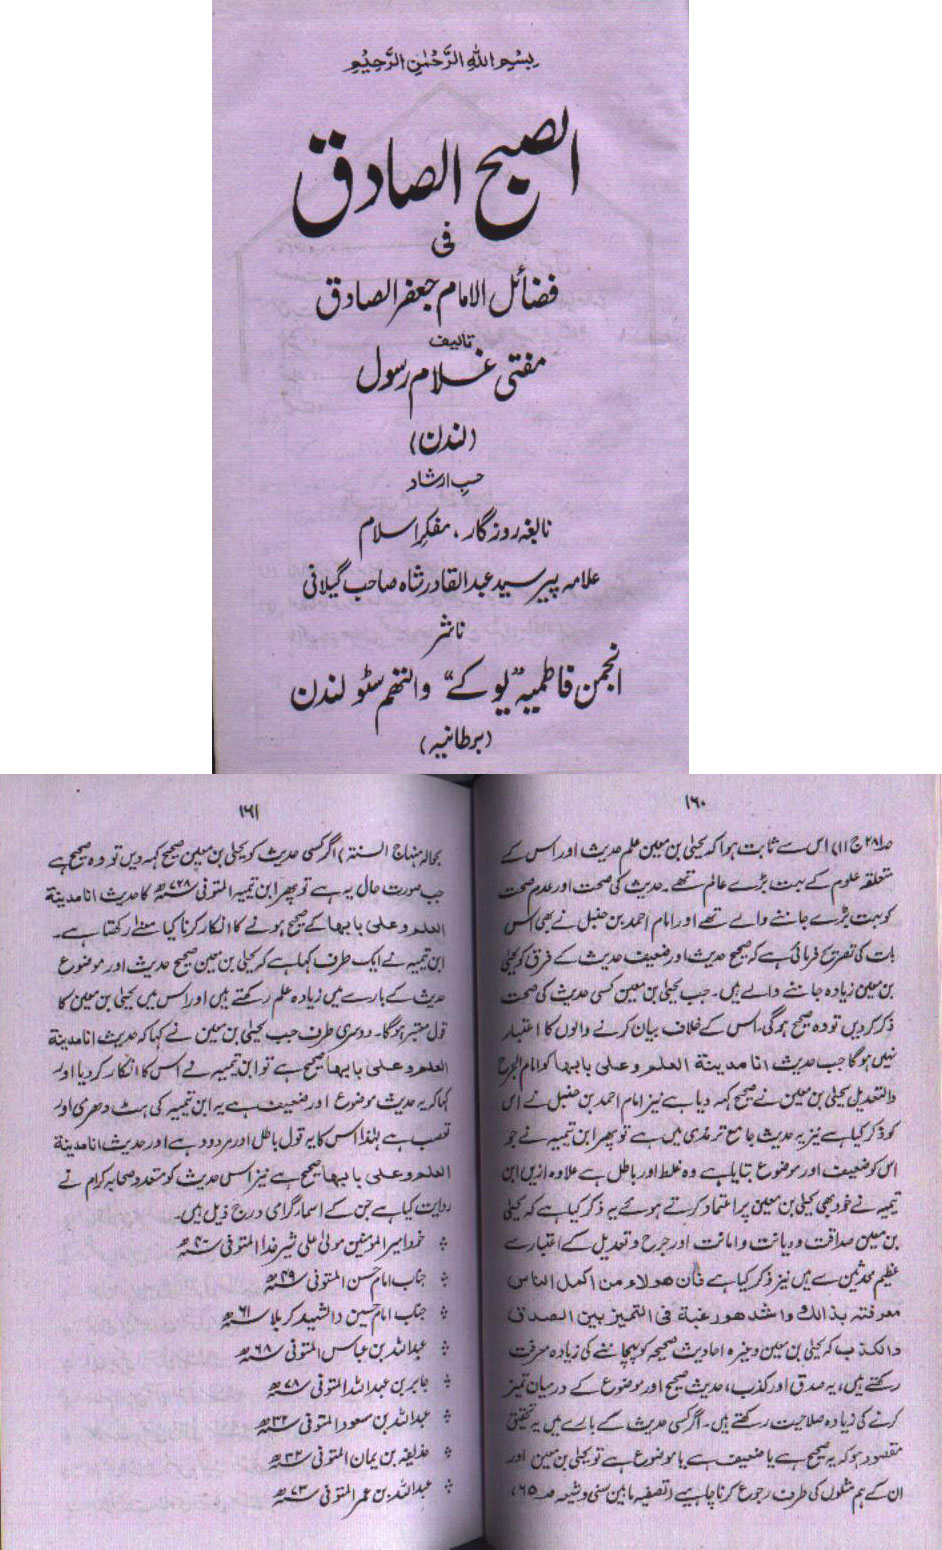 بِسْمِ اللهِ الرَّحْمٰنِ الرَّحِيْمِ
الصبح الصادق
فی
فضائل الامام جعفر الصادق
تالیف
مفتی غلام رسول
(لندن)
حسبِ ارشاد
نابغہ روزگار، مفکرِ اسلام
علامہ پیر سید عبدالقادر شاہ صاحب گیلانی
ناشر
انجمن فاطمیہ "یو کے" والتھم سٹو لندن
(برطانیہ)
۱۶۰
صد۲۸ ج ۱۱) اس سے ثابت ہوا کہ یحییٰ بن معین علم حدیث اور اس کے
متعلقہ علوم کے بہت بڑے عالم تھے۔ حدیث کی صحت اور عدم صحت
کو بہت بڑے جاننے والے تھے اور امام احمد بن حنبل نے بھی اس
بات کی تصریح فرمائی ہے کہ صحیح حدیث اور ضعیف حدیث کے فرق کو یحییٰ
بن معین زیادہ جاننے والے ہیں۔ جب یحییٰ بن معین کسی حدیث کی صحت
ذکر کر دیں تو وہ صحیح ہوگی۔ اس کے خلاف بیان کرنے والوں کا اعتبار
نہیں ہوگا جب حدیث انا مدینة العلم وعلی بابہا کو امام الجرح
والتعدیل یحییٰ بن معین نے صحیح کہہ دیا ہے نیز امام احمد بن حنبل نے اس
کو ذکر کیا ہے نیز یہ حدیث جامع ترمذی میں ہے تو پھر ابن تیمیہ نے جو
اس کو ضعیف اور موضوع بتایا ہے وہ غلط اور باطل ہے علاوہ ازیں ابن
تیمیہ نے خود بھی یحییٰ بن معین پر اعتماد کرتے ہوئے یہ ذکر کیا ہے کہ یحییٰ
بن معین صداقت و دیانت و امانت اور جرح و تعدیل کے اعتبار سے
عظیم محدثین سے ہیں نیز ذکر کیا ہے فان ھولاء من اکمل الناس
معرفتہ بذالک واشدھم رغبة فی التمیز بین الصدق
والکذب کہ یحییٰ بن معین وغیرہ احادیث صحیحہ کو پہچاننے کی زیادہ معرفت
رکھتے ہیں، یہ صدق اور کذب، حدیث صحیح اور موضوع کے درمیان تمیز
کرنے کی زیادہ صلاحیت رکھتے ہیں۔ اگر کسی حدیث کے بارے میں یہ تحقیق
مقصود ہو کہ یہ صحیح ہے یا ضعیف ہے یا موضوع ہے تو یحییٰ بن معین اور
ان کے ہم مثلوں کی طرف رجوع کرنا چاہیے (تصفیہ مابین سنی و شیعہ صد ۶۵،
۱۶۱
بحوالہ منہاج السنۃ) اگر کسی حدیث کو یحییٰ بن معین صحیح کہہ دیں تو وہ صحیح ہے
جب صورت حال یہ ہے تو پھر ابن تیمیہ المتوفی ۷۲۸ھ کا حدیث انا مدینة
العلم وعلی بابہا کے صحیح ہونے کا انکار کرنا کیا معنے رکھتا ہے۔
ابن تیمیہ نے ایک طرف کہا ہے کہ یحییٰ بن معین صحیح حدیث اور موضوع
حدیث کے بارے میں زیادہ علم رکھتے ہیں اور اس میں یحییٰ بن معین کا
قول معتبر ہوگا۔ دوسری طرف جب یحییٰ بن معین نے کہا کہ حدیث انا مدینة
العلم وعلی بابہا صحیح ہے تو ابن تیمیہ نے اس کا انکار کر دیا اور
کہا کہ یہ حدیث موضوع اور ضعیف ہے یہ ابن تیمیہ کی ہٹ دھری اور
تعصب ہے لہٰذا اس کا یہ قول باطل اور مردود ہے اور حدیث انا مدینة
العلم وعلی بابہا صحیح ہے نیز اس حدیث کو متعدد صحابہ کرام نے
روایت کیا ہے جن کے اسمار گرای درج ذیل ہیں۔
خود امیر المومنین مولیٰ علی شیر خدا المتوفی ۴۰ھ
جناب امام حسن المتوفی ۴۹ھ
جناب امام حسین دالشید کربلا ۶۱ھ
عبداللہ بن عباس المتوفی ۶۸ھ
جابر بن عبداللہ المتوفی ۷۸ھ
عبداللہ بن مسعود المتوفی ۳۲ھ
حذیفہ بن یمان المتوفی ۳۶ھ
عبداللہ بن عمر المتوفی ۷۳ھ